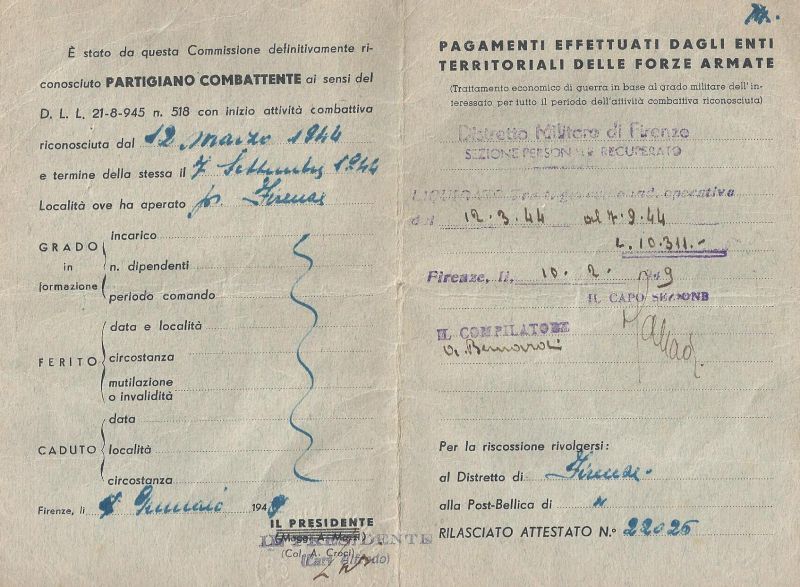 È stato da questa Commissione definitivamente ri-
conosciuto PARTIGIANO COMBATTENTE ai sensi del
D. L. L. 21-8-945 n. 518 con inizio attività combattiva
riconosciuta dal 12 Marzo 1944
e termine della stessa il 7 Settembre 1944
Località ove ha aperato Firenze
GRADO in formazione
incarico
n. dipendenti
periodo comando
FERITO
data e località
circostanza
mutilazione
o invalidità
CADUTO
data
località
circostanza
Firenze, li Gennaio 194
IL PRESIDENTE
(Magg. A. Mazzi)
IL PRESIDENTE
(Col. A. Croci)
PAGAMENTI EFFETTUATI DAGLI ENTI
TERRITORIALI DELLE FORZE ARMATE
(Trattamento economico di guerra in base al grado militare dell'in-
teressato per tutto il periodo dell'attività combattiva riconosciuta)
Distretto Militare di Firenze
SEZIONE PERSONALE RECUPERATO
LIQUIDATO operativa
dal 12.3.44 al 7.9.44
L. 10.311.-
Firenze, li, 10. 2. 949
IL CAPO SEZIONE
IL COMPILATORE
Per la riscossione rivolgersi:
al Distretto di Firenze
alla Post-Bellica di "
RILASCIATO ATTESTATO N.º 22025